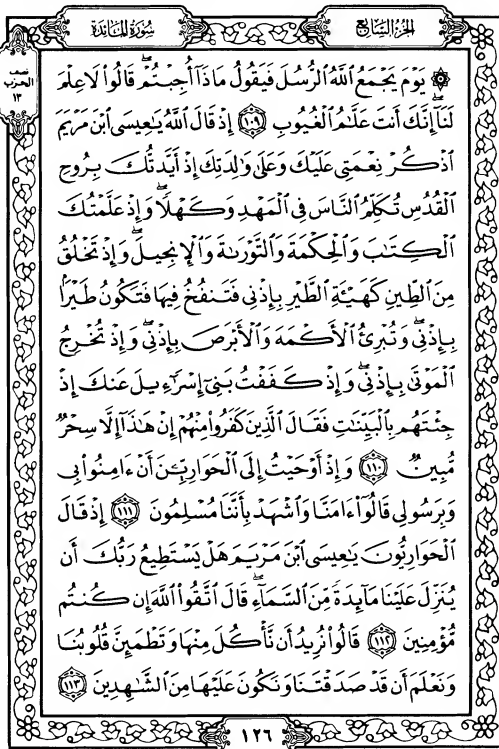 الجزء السابع
سورة المائدة
نصف
الحزب
١٣
۞ يَوْمَ يَجْمَعُ ٱللَّهُ ٱلرُّسُلَ فَيَقُولُ مَاذَآ أُجِبْتُمْۖ قَالُوا۟ لَا عِلْمَ
لَنَآۖ إِنَّكَ أَنتَ عَلَّـٰمُ ٱلْغُيُوبِ ١٠٩ إِذْ قَالَ ٱللَّهُ يَـٰعِيسَى ٱبْنَ مَرْيَمَ
ٱذْكُرْ نِعْمَتِى عَلَيْكَ وَعَلَىٰ وَٰلِدَتِكَ إِذْ أَيَّدتُّكَ بِرُوحِ
ٱلْقُدُسِ تُكَلِّمُ ٱلنَّاسَ فِى ٱلْمَهْدِ وَكَهْلًاۖ وَإِذْ عَلَّمْتُكَ
ٱلْكِتَـٰبَ وَٱلْحِكْمَةَ وَٱلتَّوْرَىٰةَ وَٱلْإِنجِيلَۖ وَإِذْ تَخْلُقُ
مِنَ ٱلطِّينِ كَهَيْـَٔةِ ٱلطَّيْرِ بِإِذْنِى فَتَنفُخُ فِيهَا فَتَكُونُ طَيْرًۢا
بِإِذْنِىۖ وَتُبْرِئُ ٱلْأَكْمَهَ وَٱلْأَبْرَصَ بِإِذْنِىۖ وَإِذْ تُخْرِجُ
ٱلْمَوْتَىٰ بِإِذْنِىۖ وَإِذْ كَفَفْتُ بَنِىٓ إِسْرَٰٓءِيلَ عَنكَ إِذْ
جِئْتَهُم بِٱلْبَيِّنَـٰتِ فَقَالَ ٱلَّذِينَ كَفَرُوا۟ مِنْهُمْ إِنْ هَـٰذَآ إِلَّا سِحْرٌ
مُّبِينٌ ١١٠ وَإِذْ أَوْحَيْتُ إِلَى ٱلْحَوَارِيِّـۧنَ أَنْ ءَامِنُوا۟ بِى
وَبِرَسُولِى قَالُوٓا۟ ءَامَنَّا وَٱشْهَدْ بِأَنَّنَا مُسْلِمُونَ ١١١ إِذْ قَالَ
ٱلْحَوَارِيُّونَ يَـٰعِيسَى ٱبْنَ مَرْيَمَ هَلْ يَسْتَطِيعُ رَبُّكَ أَن
يُنَزِّلَ عَلَيْنَا مَآئِدَةً مِّنَ ٱلسَّمَآءِۖ قَالَ ٱتَّقُوا۟ ٱللَّهَ إِن كُنتُم
مُّؤْمِنِينَ ١١٢ قَالُوا۟ نُرِيدُ أَن نَّأْكُلَ مِنْهَا وَتَطْمَئِنَّ قُلُوبُنَا
وَنَعْلَمَ أَن قَدْ صَدَقْتَنَا وَنَكُونَ عَلَيْهَا مِنَ ٱلشَّـٰهِدِينَ ١١٣
١٢٦